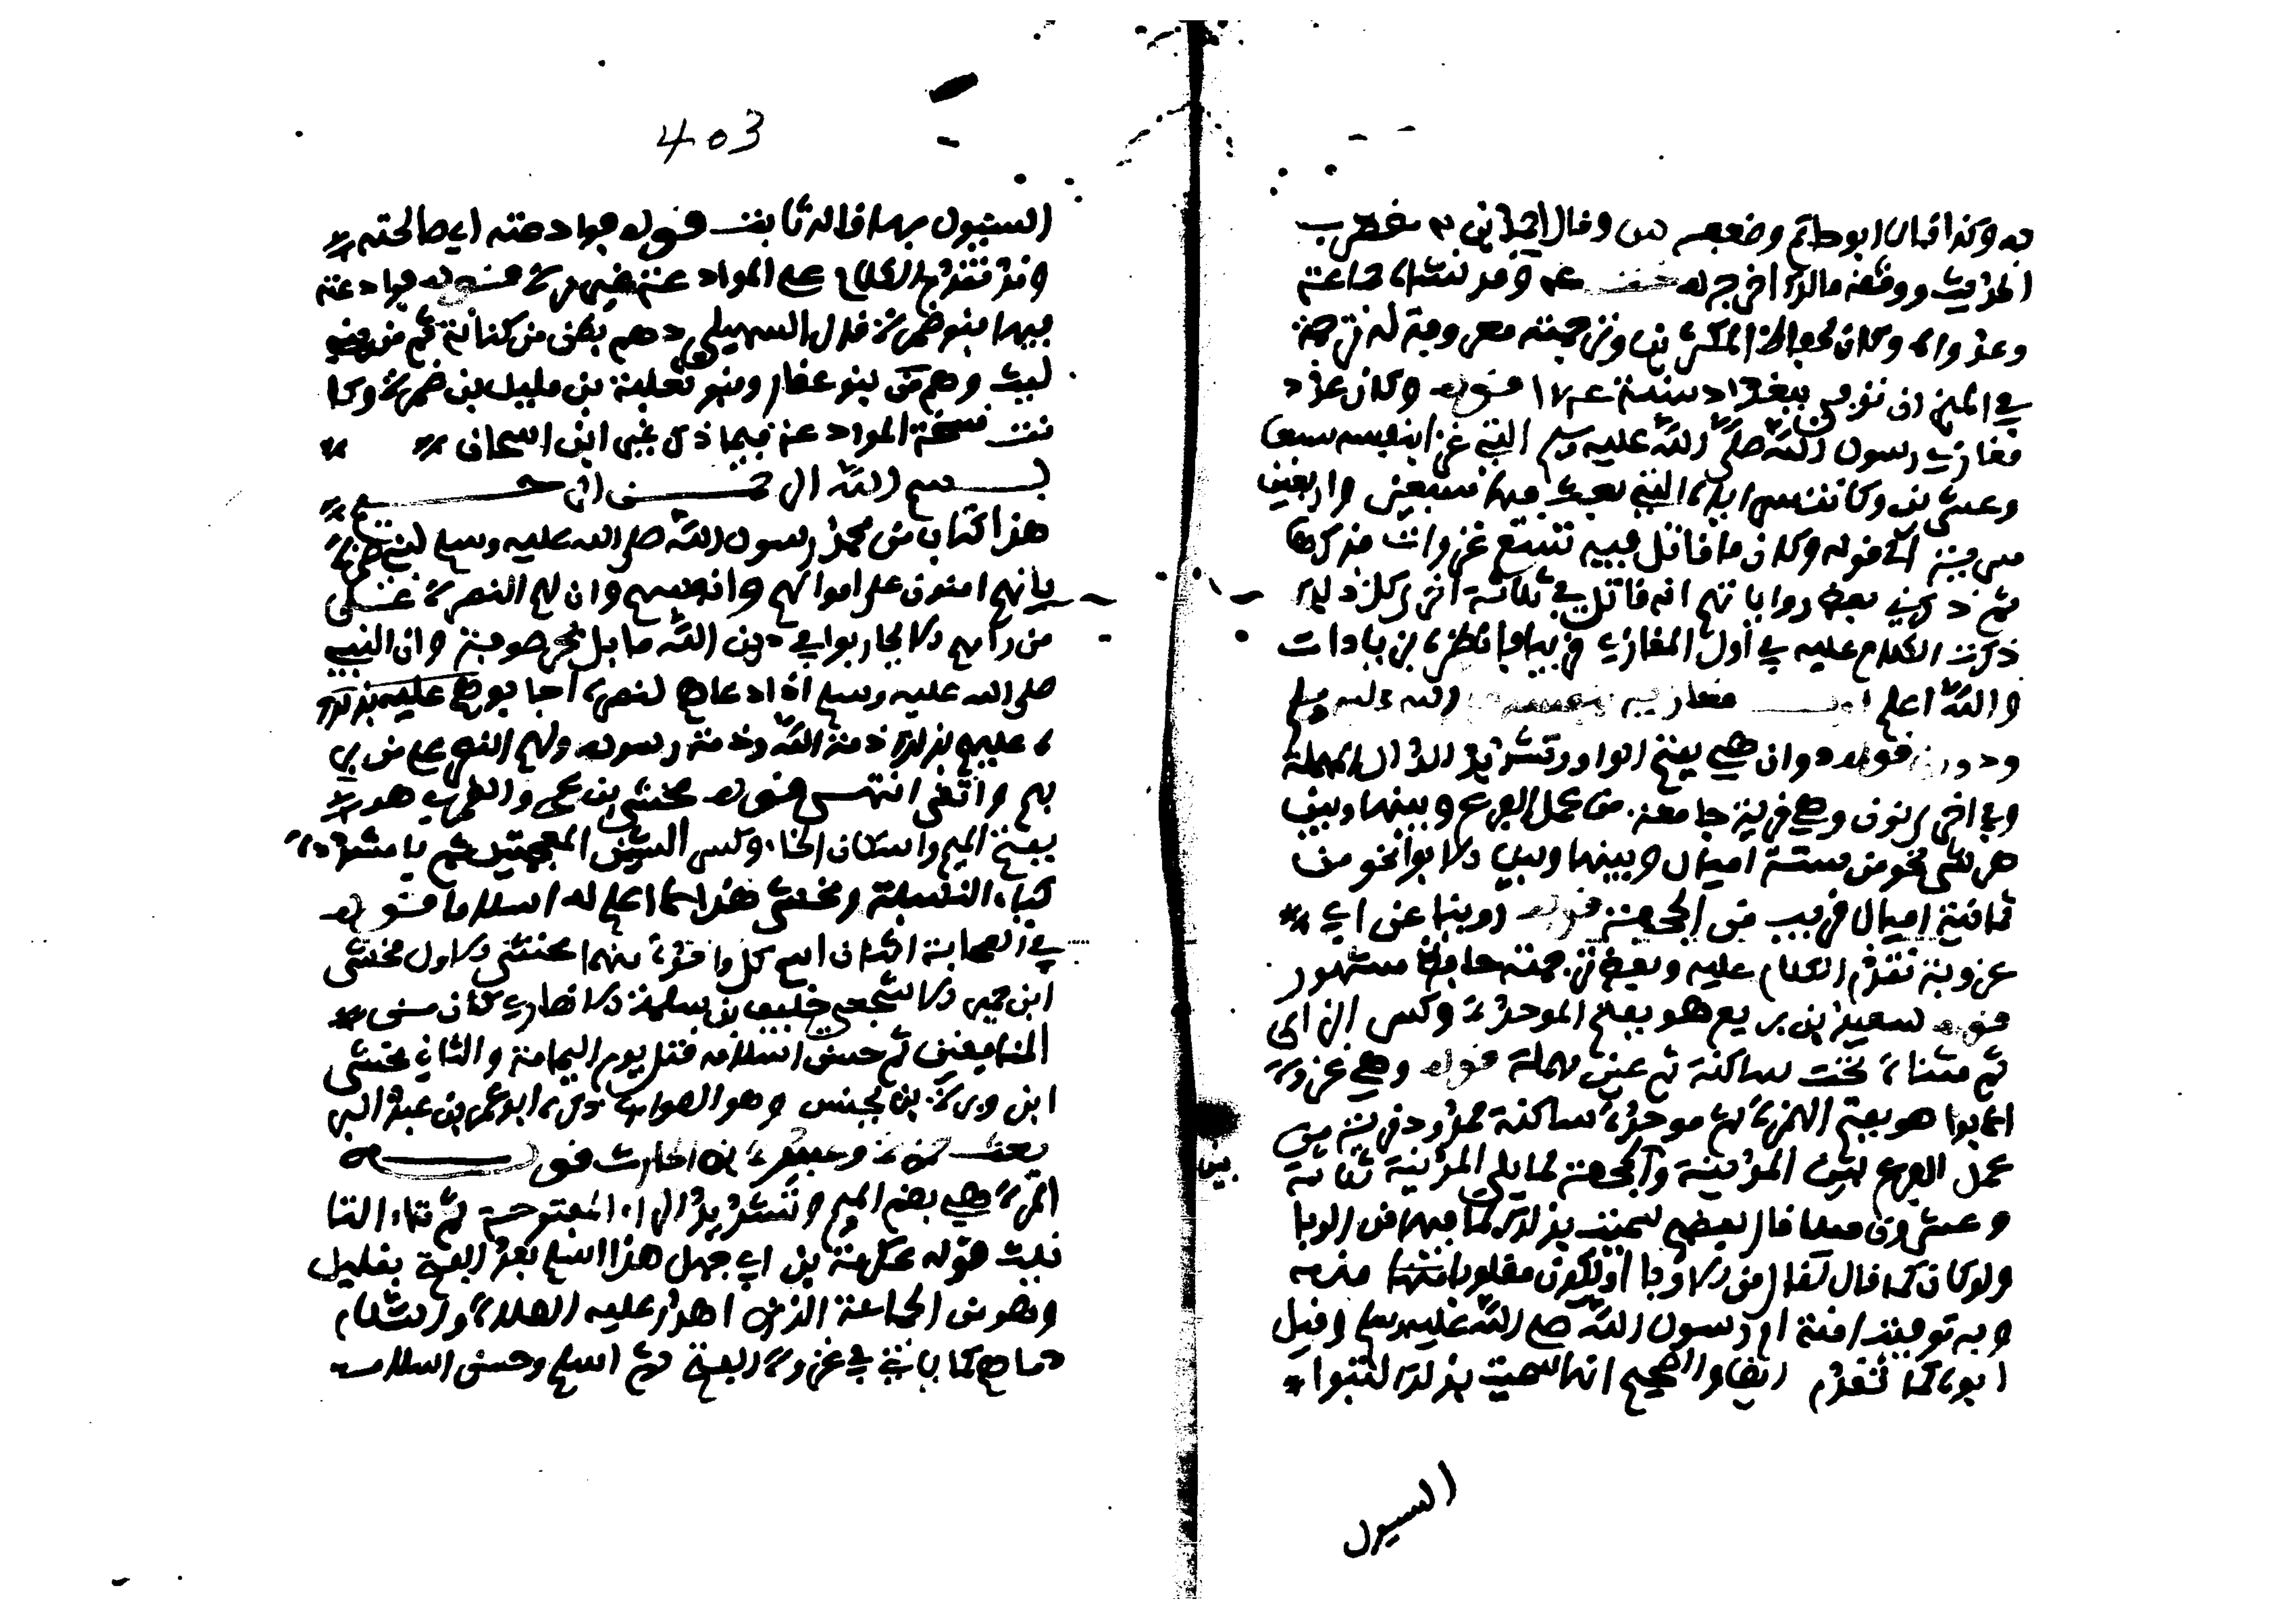 به وكذا قال ابو حاتم وضعفه س وقال احمد بن مضطرب
الحديث ووثقه مالك اخرج له وقد تقدم جماعة
وعد والده وكان لحفاظ المكثرين وترجمته معروفة له ترجمة
في الميزان توفي ببغداد سنة قوله وكان عدد
مغازي رسول الله صلى الله عليه وسلم التي غزا بنفسه سبعا
وعشرين وكانت سراياه التي بعث فيها سبعين واربعين
سرية الى قوله وكان ما قاتل فيه تسع غزوات فذكرها
ثم ذكر في بعض رواياتهم انه قاتل في ثلاثة اخر كل ذلك
ذكرت الكلام عليه في اول المغازي قريبا فانظره بزيادات
والله اعلم الله عليه وسلم
ودون قوله ودان هي بفتح الواو وتشديد الدال المهملة
وفي اخره نون وهي قرية جامعة من عمل الفرع وبينها وبين
هرشى نحو من ستة اميال وبينها وبين الابواء نحو من
ثمانية اميال قريب من الجحفة قوله روينا عن ابي
عروبة تقدم الكلام عليه وبعض ترجمته حافظ مشهور
قوله سعيد بن بزيع هو بفتح الموحدة وكسر الزاي
ثم مثناة تحت ساكنة ثم عين مهملة قوله وهي غزوة
الابوا هو بفتح الهمزة ثم موحدة ساكنة ممدود قرية من
عمل الفرع بين المدينة والجحفة مما يلي المدينة ثلاثة
وعشرون ميلا قال بعضهم سميت بذلك لما فيها من الوبا
ولو كان كما قال لقال من الاوبا او يكون مقلوبا منه
وبه توفيت امنة ام رسول الله صلى الله عليه وسلم وقيل
ابوه كما تقدم ايضا والصحيح انها سميت بذلك لتبوا
السيول
403
السيول بها قاله ثابت قوله فوادعته اي صالحته
وقد تقدم الكلام على الموادعة غير مرة قوله فوادعته
فيها بنو ضمرة قال السهيلي وهم بطن من كنانة ثم من
ليث وهم من بنو غفار وبنو ثعلبة بن مليل بن ضمرة وكا
نت نسخة الموادعة فيما ذكر غير ابن اسحاق
بسم الله الرحمن الرحيم
هذا كتاب من محمد رسول الله صلى الله عليه وسلم لبني ضمرة
بانهم امنون على اموالهم وانفسهم وان لهم النصر على
من رامهم الا يحاربوا في دين الله ما بل بحر صوفة وان النبي
صلى الله عليه وسلم اذا دعاهم لنصره اجابوه عليهم بذلك
عليهم بذلك ذمة الله وذمة رسوله ولهم النصر على من بر
بهم واتقى انتهى قوله مخشي بن عمرو الضمري هو
بفتح الميم واسكان الخاء وكسر الشين المعجمتين ثم يا مشددة
كياء النسبة ومخشي هذا ما اعلم له اسلاما قوله
في الصحابة اثنان اسم كل واحد منهما مخشي الاول مخشي
ابن حمير الاشجعي حليف بن سلمة الانصاري كان من
المنافقين ثم حسن اسلامه قتل يوم اليمامة والثاني مخشي
ابن وبرة بن يحنس وهو الصواب ذكره ابو عمر بن عبد البر
بعث حمزة وعبيدة بن الحارث قوله
المرة هي بضم الميم وتشديد الراء المفتوحة ثم تاء التا
نيث قوله عكرمة بن ابي جهل هذا اسلم بعد الفتح بقليل
وهو من الجماعة الذين اهدر عليه الصلاة والسلام
دماءهم كما ياتي في غزوة الفتح ثم اسلم وحسن اسلامه